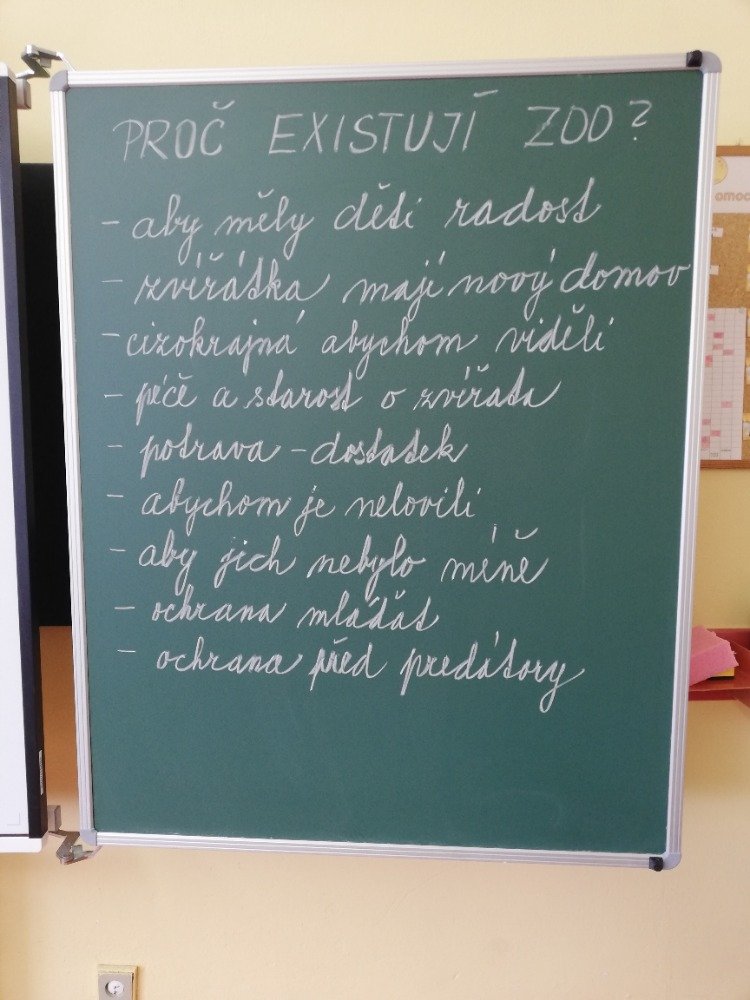 PROČ EXISTUJÍ ZOO?
- aby měly děti radost
- zvířátka mají nový domov
- cizokrajná abychom viděli
- péče a starost o zvířata
- potrava - dostatek
- abychom je nelovili
- aby jich nebylo méně
- ochrana mláďat
- ochrana před predátory
omoc